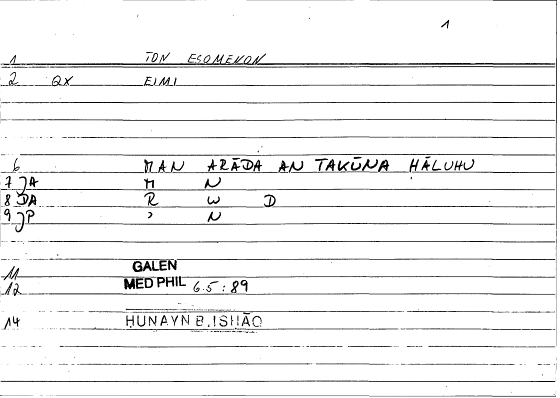 1
1 TON ESOMENON
2 QX EIMI
6 MAN ARĀDA AN TAKŪNA HĀLUHU
7 JA M N
8 DA R W D
9 JP ʾ N
11 GALEN
12 MED PHIL 6.5:89
14 HUNAYN B. ISHĀQ